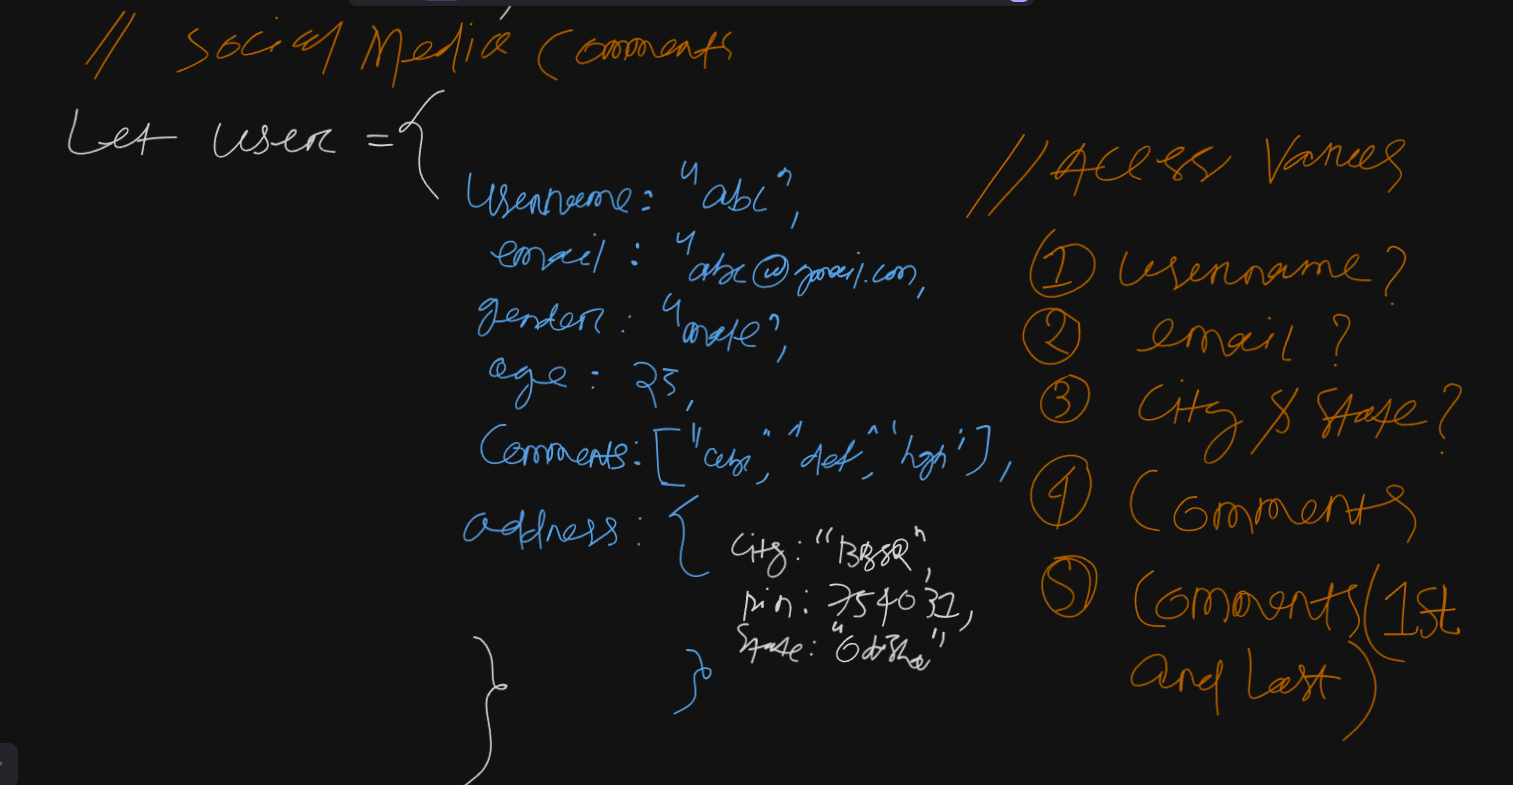 // Social Media Comments
Let user = {
username: "abc",
email : "abc@gmail.com,
gender : "male",
age : 23,
Comments: ["abc", "def", "hgh"],
address : {
City : "BBSR",
pin : 754032,
State : "Odisha"
}
}
// Acess Values
① username?
② email ?
③ City & State?
④ Comments
⑤ Comments (1st
and Last)